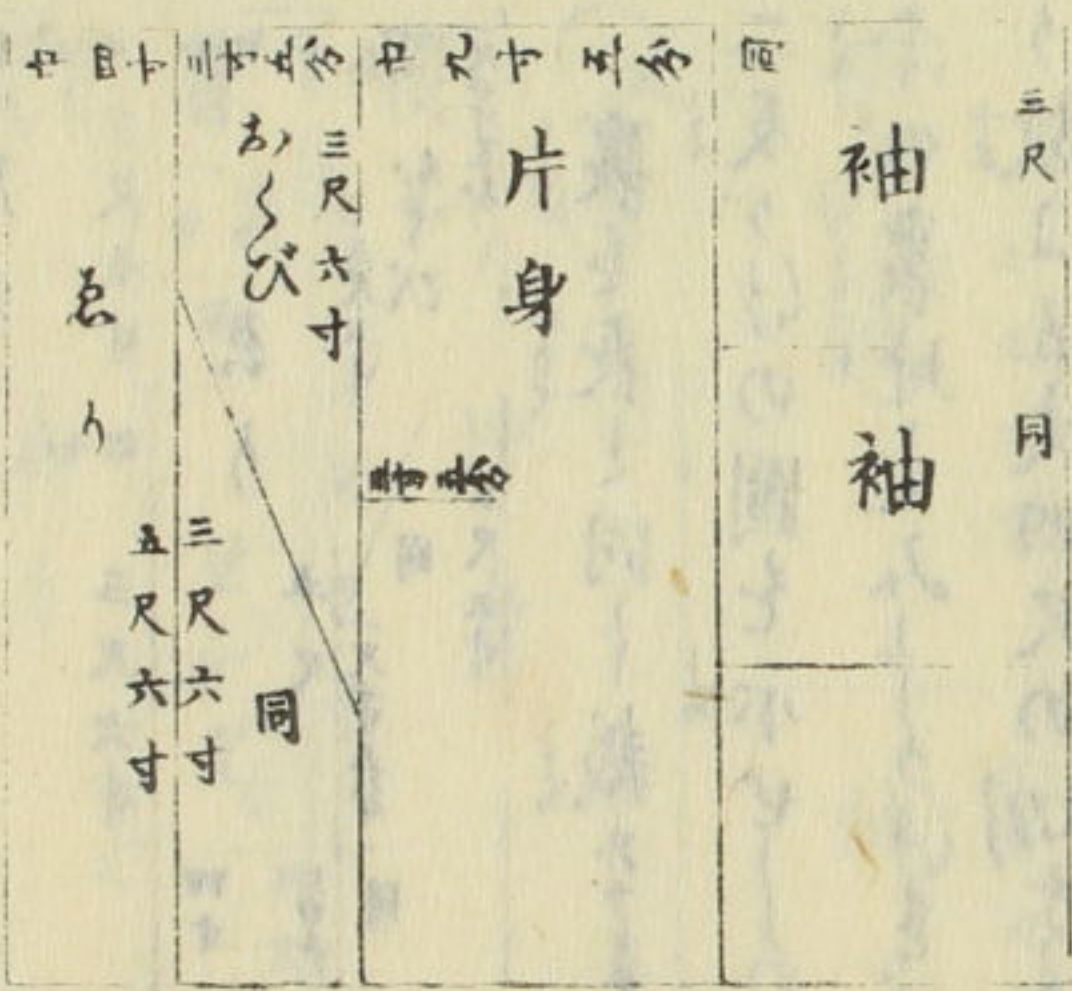 三尺
同
同
袖
袖
巾九寸五分
片身
三寸五分
三尺六寸
おくび
同
三尺六寸
巾四寸
ゑり
五尺六寸